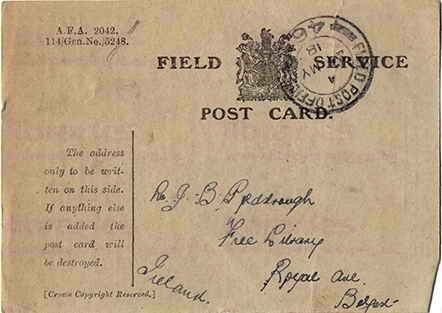 A.F.A. 2042.
114/Gen.No./5248.
FIELD SERVICE
POST CARD.
FIELD POST OFFICE
46
A
MY
18
The address
only to be writ-
ten on this side.
If anything else
is added the
post card will
be destroyed.
[Crown Copyright Reserved.]
J. B.
Free Library
Royal Ave.
Belfast
Ireland.